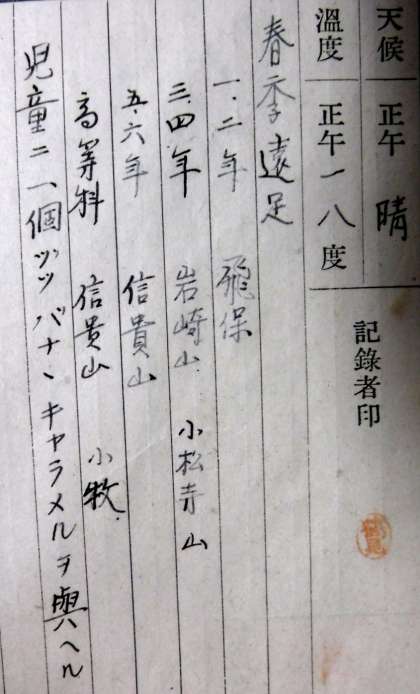 天候 正午 晴
溫度 正午一八度
記錄者印
春季遠足
一、二年 飛保
三、四年 岩崎山 小松寺山
五、六年 信貴山
高等科 信貴山 小牧
児童ニ一個ヅツバナヽキャラメルヲ與ヘル